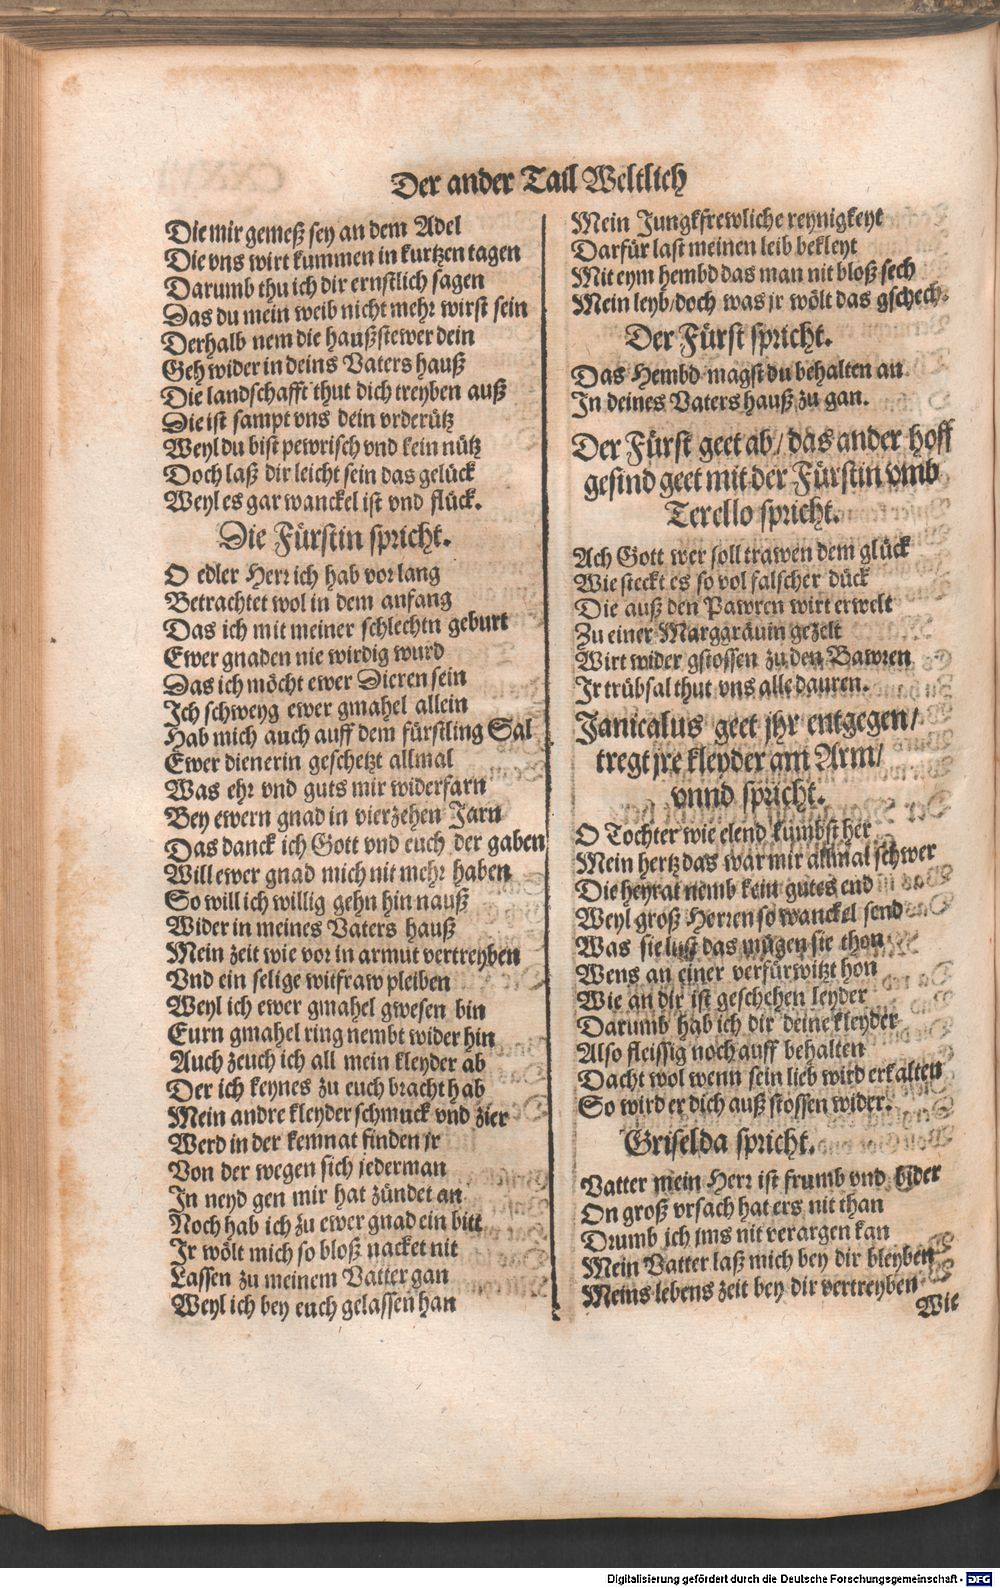 Der ander Tail Weltlich
Die mir gemeß sey an dem Adel
Die vns wirt kummen in kurtzen tagen
Darumb thu ich dir ernstlich sagen
Das du mein weib nicht mehr wirst sein
Derhalb nem die haußstewer dein
Geh wider in deins Vaters hauß
Die landschafft thut dich treyben auß
Die ist sampt vns dein vrderütz
Weyl du bist pewrisch vnd kein nütz
Doch laß dir leicht sein das gelück
Weyl es gar wanckel ist vnd flück.
Die Fürstin spricht.
O edler Herr ich hab vor lang
Betrachtet wol in dem anfang
Das ich mit meiner schlechtn geburt
Ewer gnaden nie wirdig wurd
Das ich möcht ewer Dieren sein
Ich schweyg ewer gmahel allein
Hab mich auch auff dem fürstling Sal
Ewer dienerin geschetzt allmal
Was ehr vnd guts mir widerfarn
Bey ewern gnad in vierzehen Jarn
Das danck ich Gott vnd euch der gaben
Will ewer gnad mich nit mehr haben
So will ich willig gehn hin nauß
Wider in meines Vaters hauß
Mein zeit wie vor in armut vertreyben
Vnd ein selige witfraw pleiben
Weyl ich ewer gmahel gwesen bin
Eurn gmahel ring nembt wider hin
Auch zeuch ich all mein kleyder ab
Der ich keynes zu euch bracht hab
Mein andre kleyder schmuck vnd zier
Werd in der kemnat finden jr
Von der wegen sich jederman
In neyd gen mir hat zündet an
Noch hab ich zu ewer gnad ein bitt
Ir wölt mich so bloß nacket nit
Lassen zu meinem Vatter gan
Weyl ich bey euch gelassen han
Mein Jungkfrewliche reynigkeyt
Darfür last meinen leib bekleyt
Mit eym hembd das man nit bloß sech
Mein leyb/doch was jr wölt das gschech.
Der Fürst spricht.
Das Hembd magst du behalten an
In deines Vaters hauß zu gan.
Der Fürst geet ab/das ander hoff
gesind geet mit der Fürstin vmb
Terello spricht.
Ach Gott wer soll trawen dem glück
Wie steckt es so vol falscher dück
Die auß den Pawren wirt erwelt
Zu einer Marggräuin gezelt
Wirt wider gstossen zu den Bawren
Ir trübsal thut vns alle dauren.
Janicalus geet jhr entgegen/
tregt jre kleyder am Arm/
vnnd spricht.
O Tochter wie elend kumbst her
Mein hertz das war mir allmal schwer
Die heyrat nemb kein gutes end
Weyl groß Herren so wanckel send
Was sie lust das mügen sie thon
Wens an einer verfürwitzt hon
Wie an dir ist geschehen leyder
Darumb hab ich dir deine kleyder
Also fleissig noch auff behalten
Dacht wol wenn sein lieb wird erkalten
So wird er dich auß stossen wider.
Griselda spricht.
Vatter mein Herr ist frumb vnd bider
On groß vrsach hat ers nit than
Drumb ich jms nit verargen kan
Mein Vatter laß mich bey dir bleyben
Meins lebens zeit bey dir vertreyben
Wie
Digitalisierung gefördert durch die Deutsche Forschungsgemeinschaft - DFG